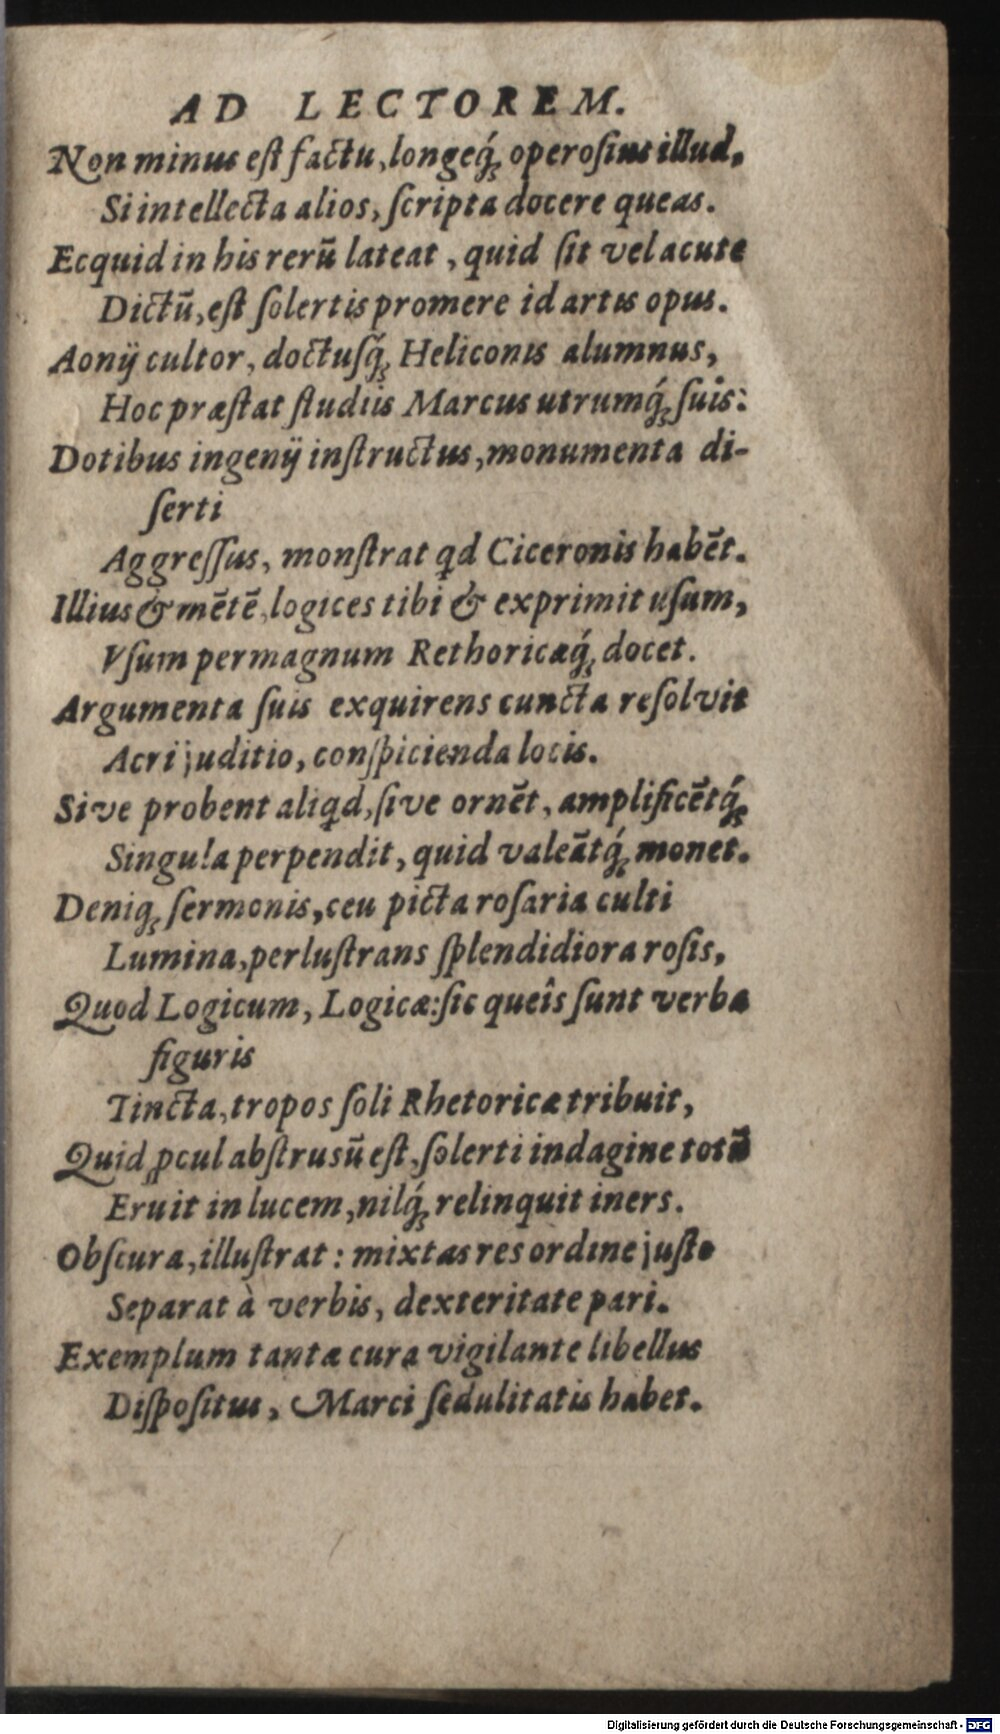 AD LECTOREM.
Non minus eſt factu, longeq́; operoſius illud,
Si intellecta alios, ſcripta docere queas.
Ecquid in his rerū lateat, quid ſit vel acute
Dictū, eſt ſolertis promere id artis opus.
Aonij cultor, doctuſq́; Heliconis alumnus,
Hoc præſtat ſtudiis Marcus utrumq́; ſuis:
Dotibus ingenij inſtructus, monumenta di-
ſerti
Aggreſſus, monſtrat qd Ciceronis habēt.
Illius & mētē, logices tibi & exprimit uſum,
Vſum permagnum Rethoricæq́; docet.
Argumenta ſuis exquirens cuncta reſolvit
Acri juditio, conſpicienda locis.
Sive probent aliqd, ſive ornēt, amplificētq́;
Singula perpendit, quid valeātq́; monet.
Deniq; ſermonis, ceu picta roſaria culti
Lumina, perluſtrans ſplendidiora roſis,
Quod Logicum, Logicæ: ſic queîs ſunt verba
figuris
Tincta, tropos ſoli Rhetoricæ tribuit,
Quid ꝓcul abſtrusū eſt, ſolerti indagine totū
Eruit in lucem, nilq́; relinquit iners.
Obſcura, illuſtrat: mixtas res ordine juſto
Separat à verbis, dexteritate pari.
Exemplum tantæ cura vigilante libellus
Diſpoſitus, Marci ſedulitatis habet.
Digitalisierung gefördert durch die Deutsche Forschungsgemeinschaft - DFG